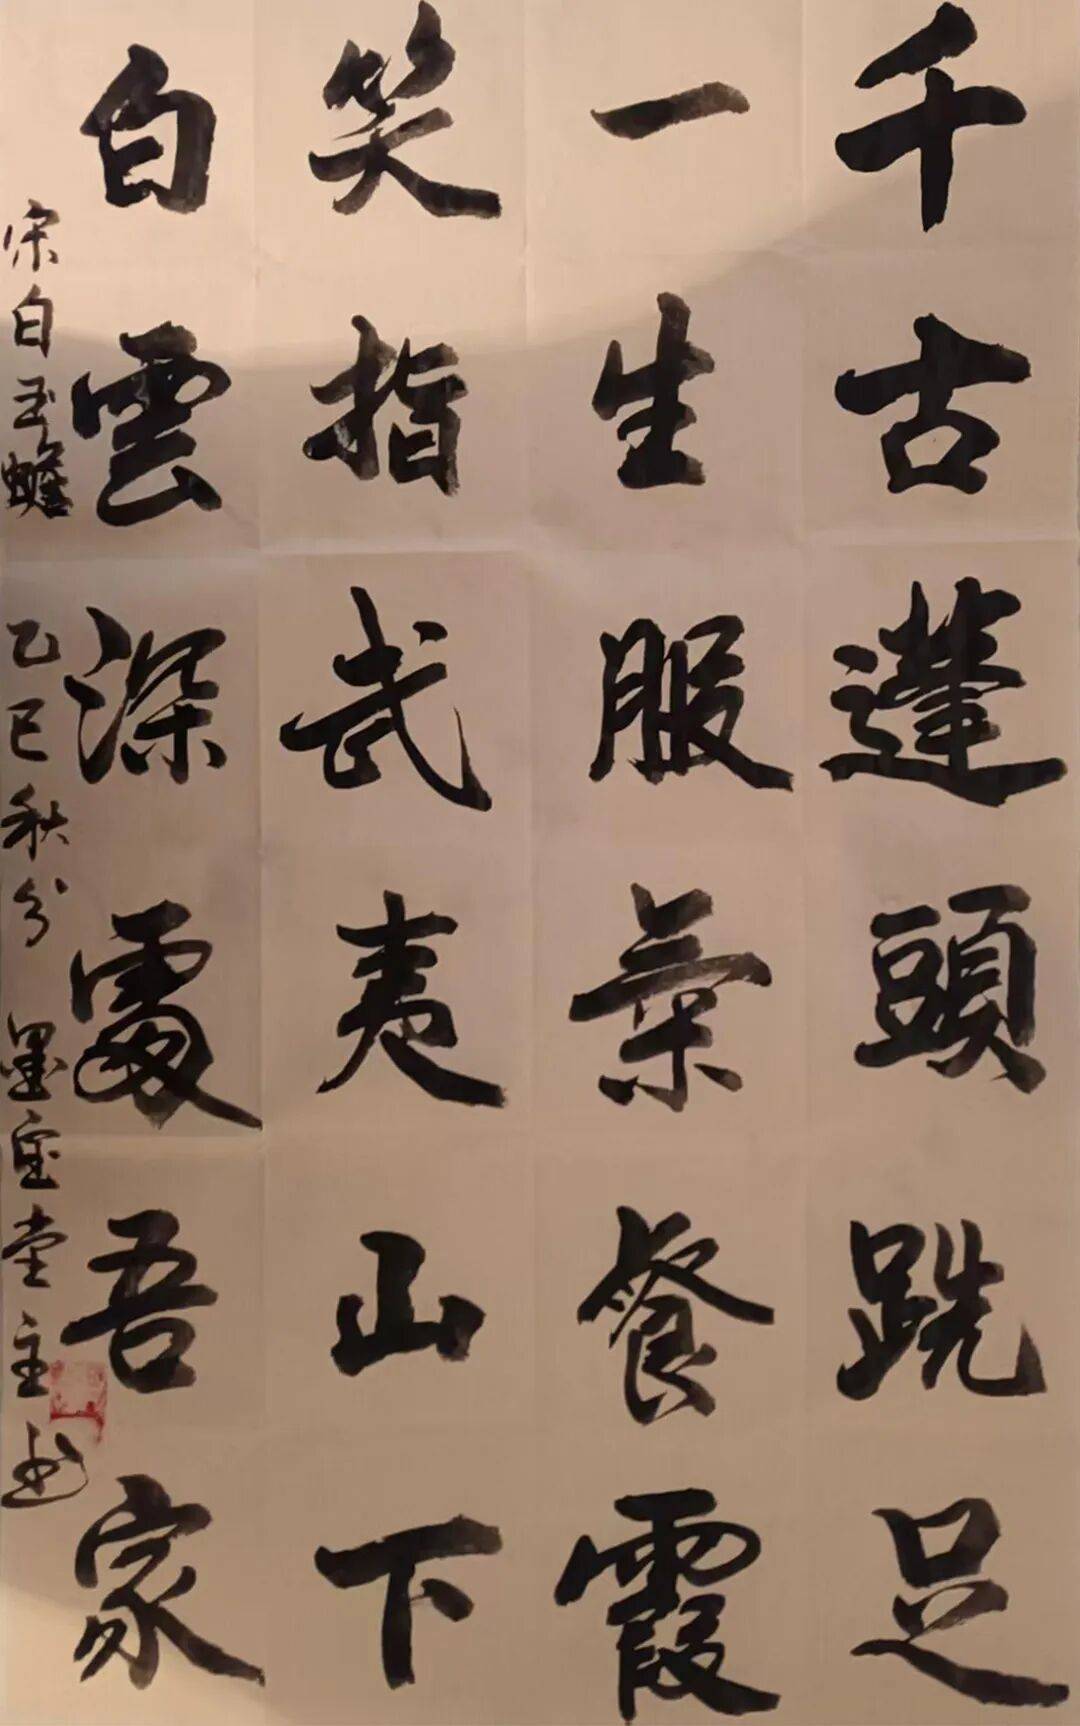 千古蓬頭跣足
一生服氣餐霞
笑指武夷山下
白雲深處吾家
宋白玉蟾 乙巳秋分 墨寶堂主书